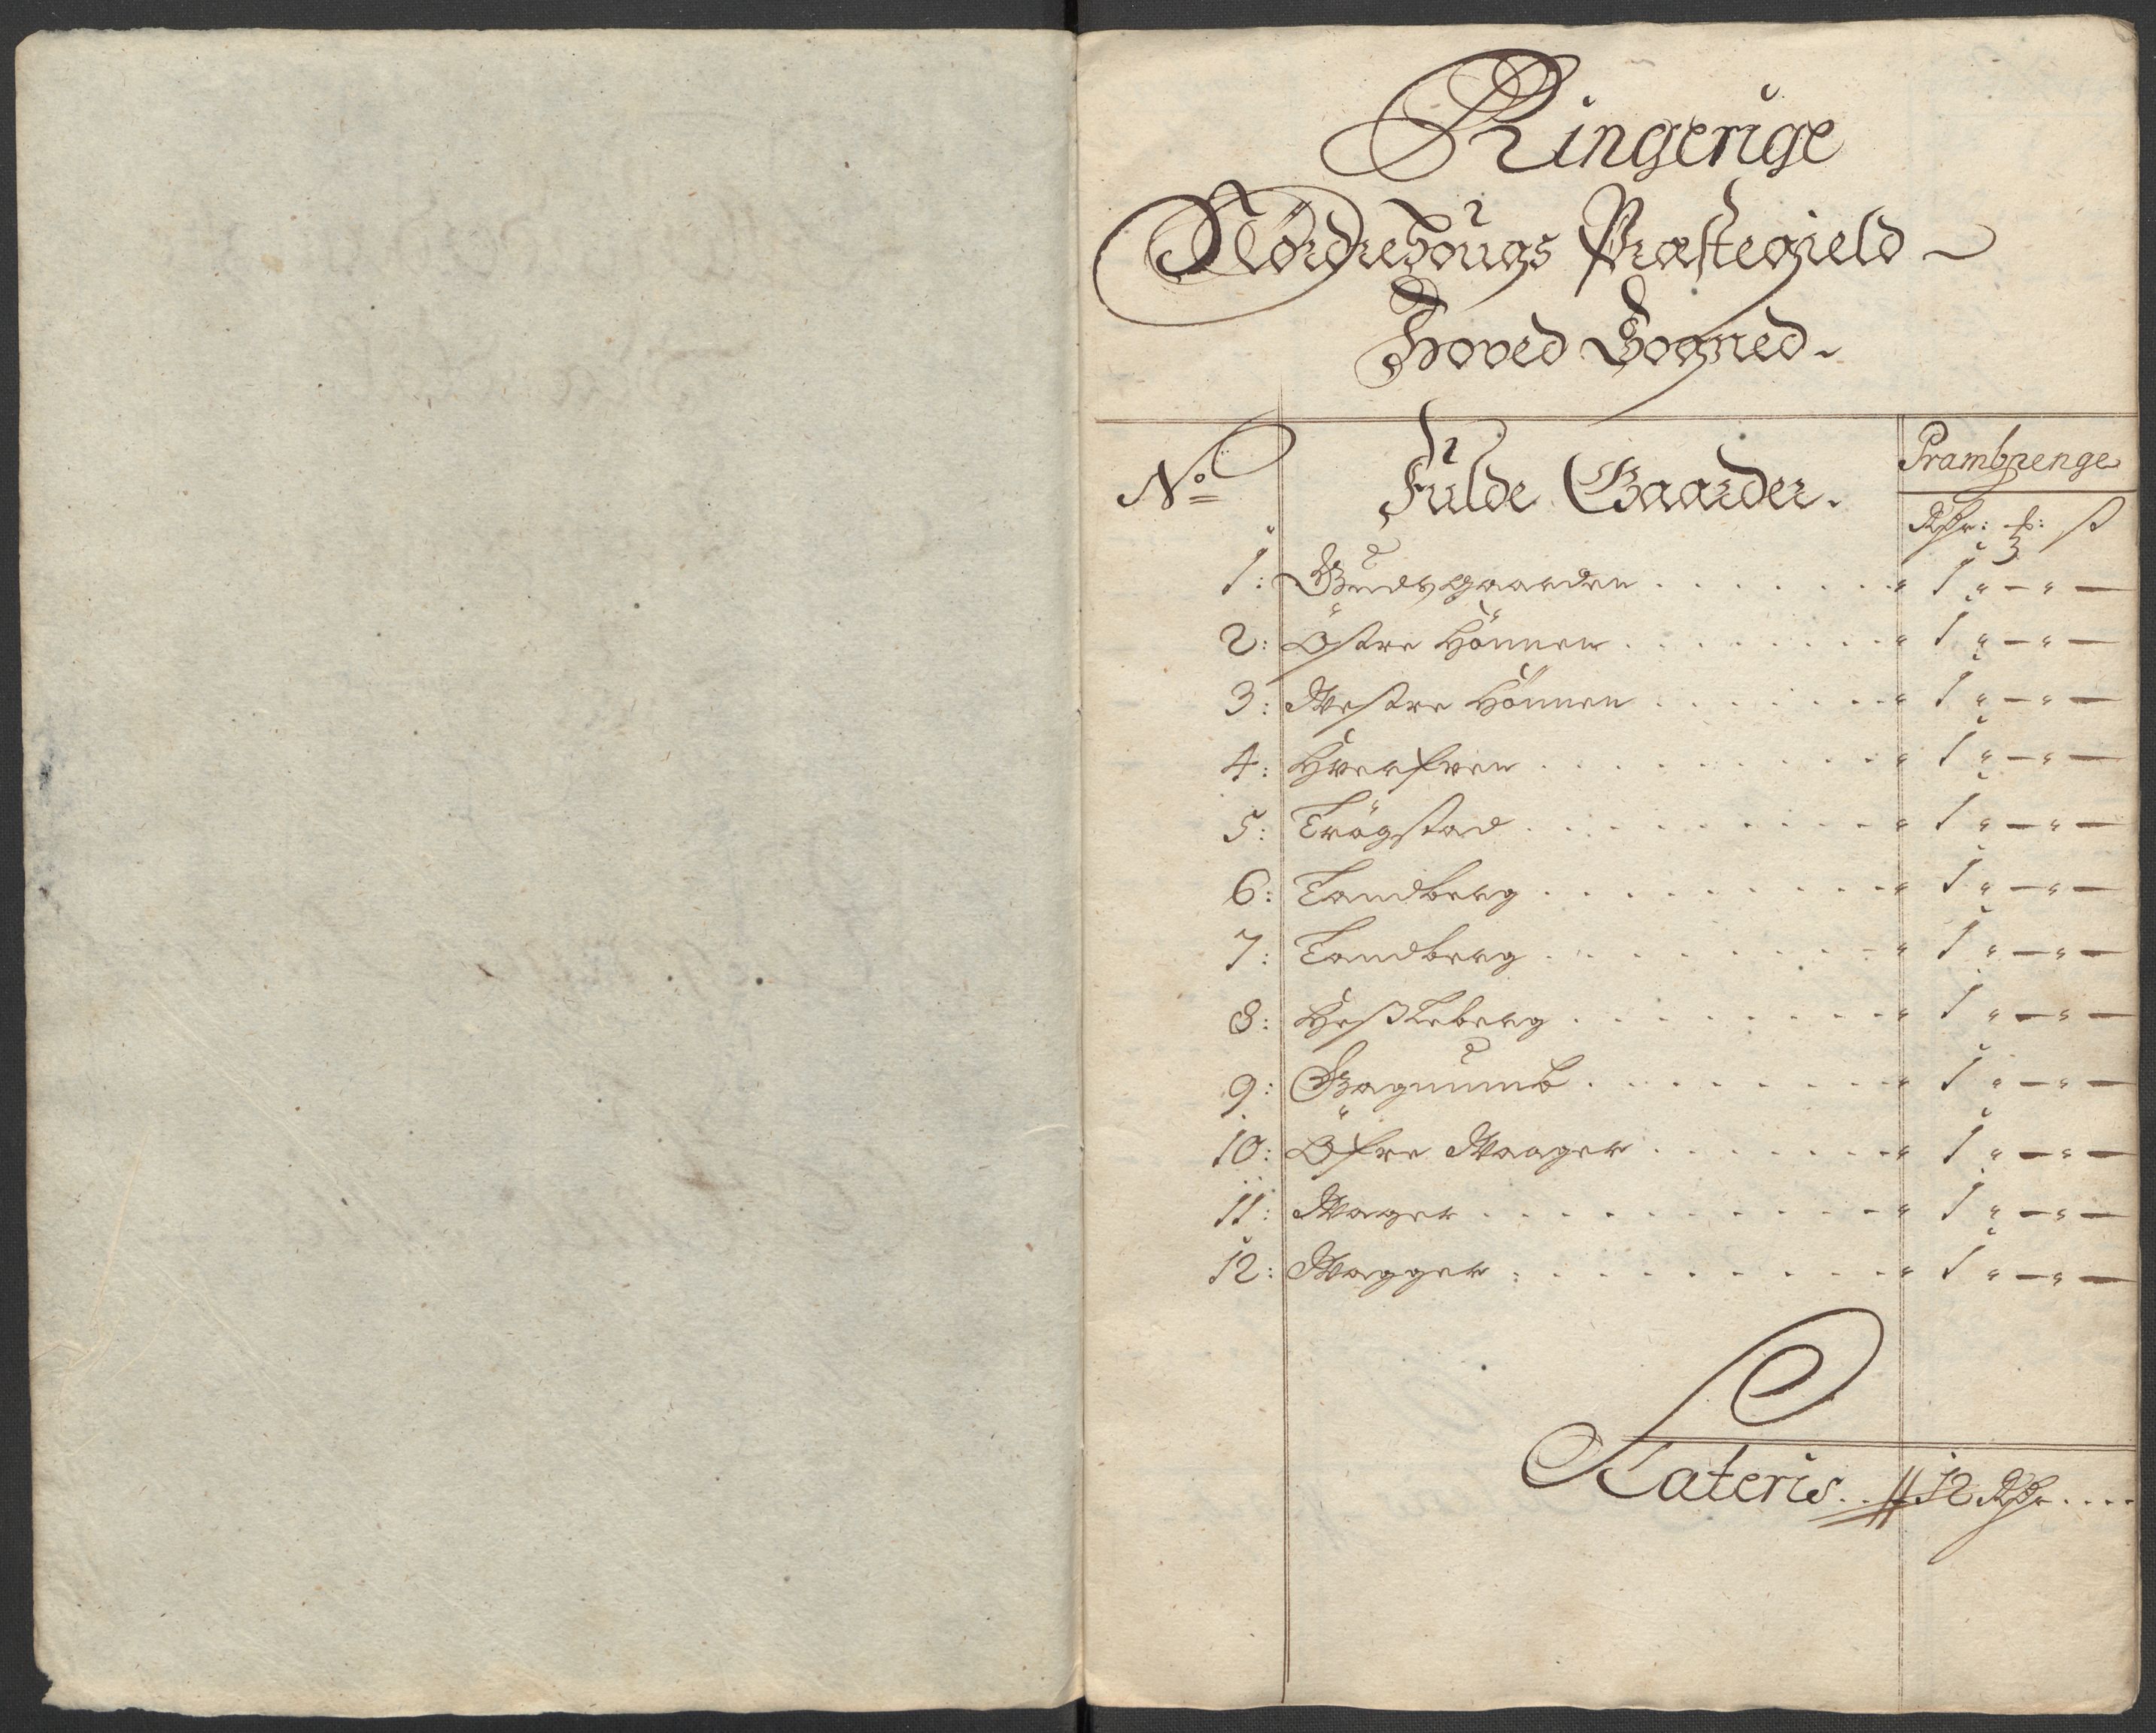 Ringerige
Nordrehougs Præstegield
Hoved Sogned
No Fulde Gaarder. Prambpenge
Rdr: ƶ: ß
1: Gudsgaarden . . . . . . " 1 " — " —
2: Östre Hönnen . . . . . . " 1 " — " —
3: Westre Hönnen . . . . . . " 1 " — " —
4: Hverfven . . . . . . " 1 " — " —
5: Trögstad . . . . . . " 1 " — " —
6: Tandberg . . . . . . " 1 " — " —
7: Tandberg . . . . . . " 1 " — " —
8: Heßleberg . . . . . . " 1 " — " —
9: Gagnumb . . . . . . " 1 " — " —
10: Öfre Waager . . . . . . " 1 " — " —
11: Wager . . . . . . " 1 " — " —
12: Wagger . . . . . . " 1 " — " —
Lateris . . 12 Rdr . . . .